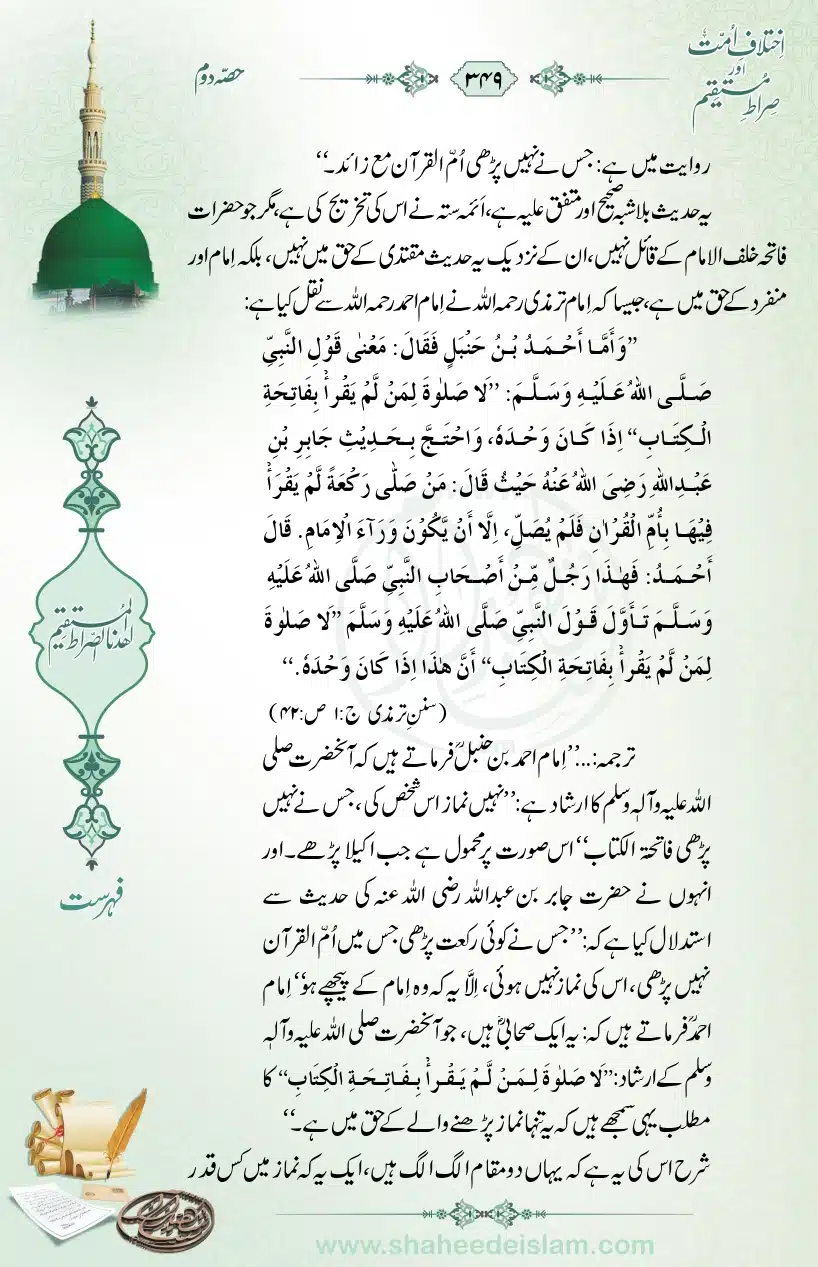 اِختلافِ اُمّت
اور
صِراطِ مُستقیم
۳۴۹
حصّہ دوم
روایت میں ہے: جس نے نہیں پڑھی اُمّ القرآن مع زائد۔‘‘
یہ حدیث بلاشبہ صحیح اور متفق علیہ ہے، اَئمہ ستہ نے اس کی تخریج کی ہے، مگر جو حضرات
فاتحہ خلف الامام کے قائل نہیں، ان کے نزدیک یہ حدیث مقتدی کے حق میں نہیں، بلکہ اِمام اور
منفرد کے حق میں ہے، جیسا کہ اِمام ترمذی رحمہ اللہ نے اِمام احمد رحمہ اللہ سے نقل کیا ہے:
’’وَأَمَّا أَحْمَدُ بْنُ حَنْبَلٍ فَقَالَ: مَعْنٰی قَوْلِ النَّبِیِّ
صَلَّی اللهُ عَلَیْهِ وَسَلَّمَ: ’’لَا صَلٰوةَ لِمَنْ لَّمْ یَقْرأْ بِفَاتِحَةِ
الْکِتَابِ‘‘ إِذَا کَانَ وَحْدَهٗ، وَاحْتَجَّ بِحَدِیْثِ جَابِرِ بْنِ
عَبْدِاللهِ رَضِیَ اللهُ عَنْهُ حَیْثُ قَالَ: مَنْ صَلّٰی رَکْعَةً لَّمْ یَقْرَأْ
فِیْهَا بِأُمِّ الْقُرْاٰنِ فَلَمْ یُصَلِّ، اِلَّا أَنْ یَّکُوْنَ وَرَآءَ الْاِمَامِ. قَالَ
أَحْمَدُ: فَهٰذَا رَجُلٌ مِّنْ أَصْحَابِ النَّبِیِّ صَلَّی اللهُ عَلَیْهِ
وَسَلَّمَ تَأَوَّلَ قَوْلَ النَّبِیِّ صَلَّی اللهُ عَلَیْهِ وَسَلَّمَ ’’لَا صَلٰوةَ
لِمَنْ لَّمْ یَقْرأْ بِفَاتِحَةِ الْکِتَابِ‘‘ أَنَّ هٰذَا إِذَا کَانَ وَحْدَهٗ.‘‘
(سننِ ترمذی ج:۱ ص:۴۲)
ترجمہ:...’’اِمام احمد بن حنبلؒ فرماتے ہیں کہ آنحضرت صلی
اللہ علیہ وآلہٖ وسلم کا ارشاد ہے: ’’نہیں نماز اس شخص کی، جس نے نہیں
پڑھی فاتحۃ الکتاب‘‘ اس صورت پر محمول ہے جب اکیلا پڑھے۔ اور
انہوں نے حضرت جابر بن عبداللہ رضی اللہ عنہ کی حدیث سے
استدلال کیا ہے کہ: ’’جس نے کوئی رکعت پڑھی جس میں اُمّ القرآن
نہیں پڑھی، اس کی نماز نہیں ہوئی، اِلَّا یہ کہ وہ اِمام کے پیچھے ہو‘‘ اِمام
احمدؒ فرماتے ہیں کہ: یہ ایک صحابیؓ ہیں، جو آنحضرت صلی اللہ علیہ وآلہٖ
وسلم کے ارشاد: ’’لَا صَلٰوةَ لِمَنْ لَّمْ یَقْرأْ بِفَاتِحَةِ الْکِتَابِ‘‘ کا
مطلب یہی سمجھے ہیں کہ یہ تنہا نماز پڑھنے والے کے حق میں ہے۔‘‘
شرح اس کی یہ ہے کہ یہاں دو مقام الگ الگ ہیں، ایک یہ کہ نماز میں کس قدر
اهدنا الصراط المستقیم
فہرست
www.shaheedeislam.com